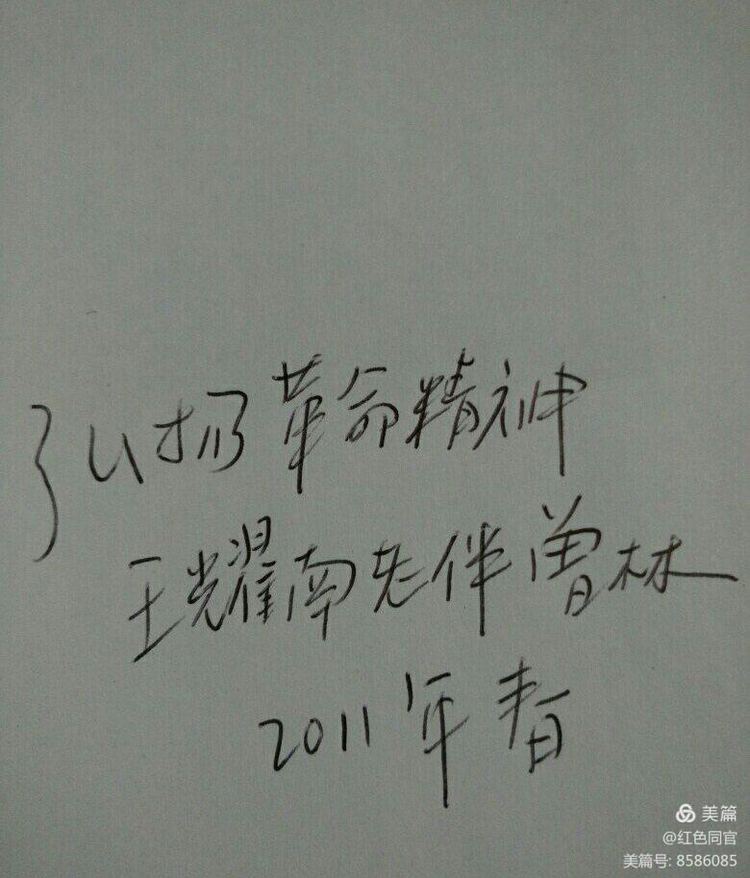 弘扬革命精神
王耀南老伴曾林
2011年春
美篇
@红色同官
美篇号: 8586085